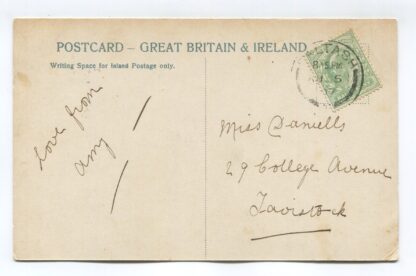 POSTCARD – GREAT BRITAIN & IRELAND
Writing Space for Inland Postage only.
SALTASH
8.15PM
Love from
Amy
Miss Daniells
29 College Avenue
Tavistock